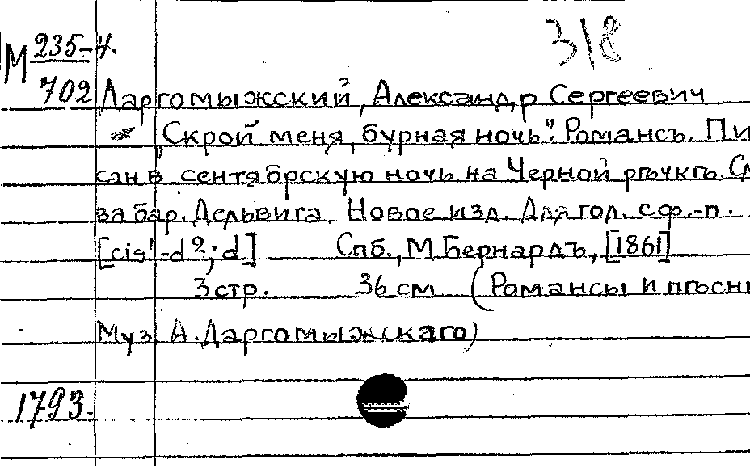 318
М 235-4.
702 Даргомыжский, Александр Сергеевич
"Скрой меня, бурная ночь". Романсъ. Пи
сан в сентябрскую ночь на Черной рѣчкѣ. Сл
ва бар. Дельвига. Новое изд. Для гол. с ф.-п.
[cis'-d²; d] Спб., М. Бернардъ, [1861]
3 стр. 36 см (Романсы и пѣсни
Муз А. Даргомыжскаго)
1793.